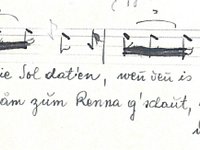 ie Sol daten, weñ deñ is
åm zŭm Renna g'schaut,